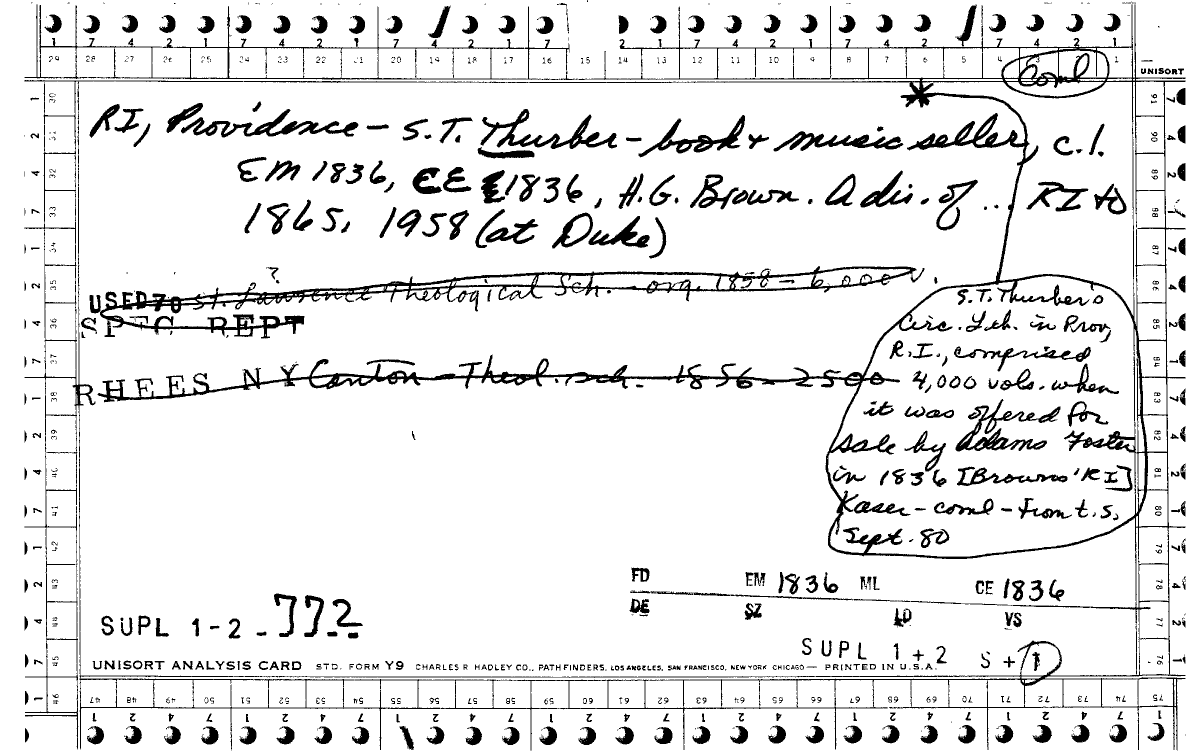 1 7 4 2 1 7 4 2 1 7 4 2 1 7 2 1 7 4 2 1 7 4 2 1 7 4 2 1
29 28 27 26 25 24 23 22 21 20 19 18 17 16 15 14 13 12 11 10 9 8 7 6 5 4 3 2 1
UNISORT
Coml
RI, Providence - S.T. Thurber - book + music seller, c.l.
EM 1836, CE 1836, H.G. Brown. A dir. of ... RI to
1865, 1958 (at Duke)
?
USED 70 St. Lawrence Theological Sch. - org. 1858 - 6,000 v.
SPEC REPT
RHEES NY Canton - Theol. sch. 1856 - 2500
S.T. Thurber's
Circ. Lib. in Prov,
R.I., comprised
4,000 vols. when
it was offered for
sale by Adams Foster
in 1836 [Browns' RI]
Kaser - coml - From t.s.
Sept. 80
FD EM 1836 ML CE 1836
DE SZ LD VS
SUPL 1-2 - 772
SUPL 1 + 2 S + 1
UNISORT ANALYSIS CARD STD. FORM Y9 CHARLES R. HADLEY CO., PATHFINDERS, LOS ANGELES, SAN FRANCISCO, NEW YORK CHICAGO — PRINTED IN U.S.A.
47 48 49 50 51 52 53 54 55 56 57 58 59 60 61 62 63 64 65 66 67 68 69 70 71 72 73 74 75